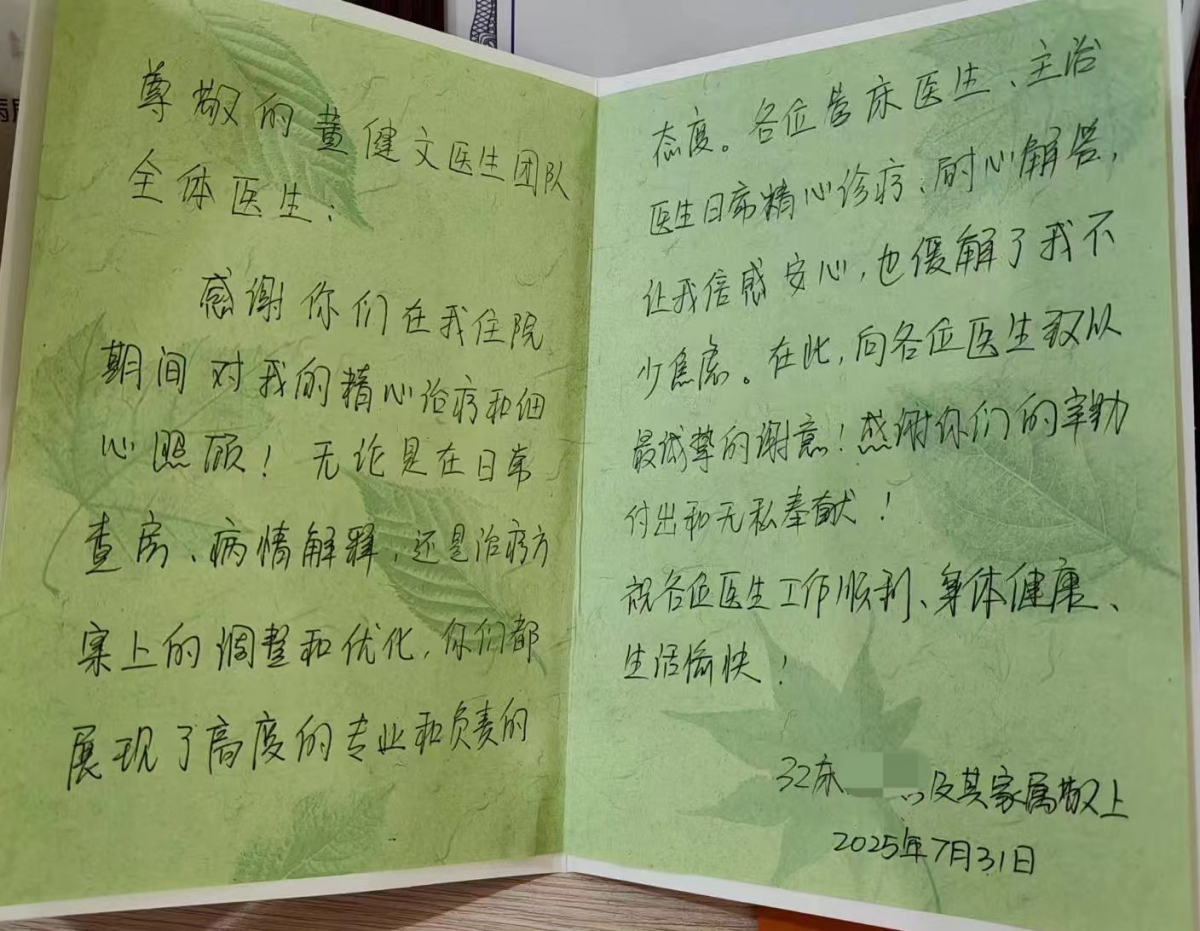 尊敬的黄健文医生团队
全体医生：
感谢你们在我住院
期间对我的精心治疗和细
心照顾！无论是在日常
查房、病情解释，还是治疗方
案上的调整和优化，你们都
展现了高度的专业和负责的
态度。各位管床医生、主治
医生日常精心诊疗、耐心解答，
让我倍感安心，也缓解了我不
少焦虑。在此，向各位医生致以
最诚挚的谢意！感谢你们的辛勤
付出和无私奉献！
祝各位医生工作顺利、身体健康、
生活愉快！
32床
及其家属敬上
2025年7月31日